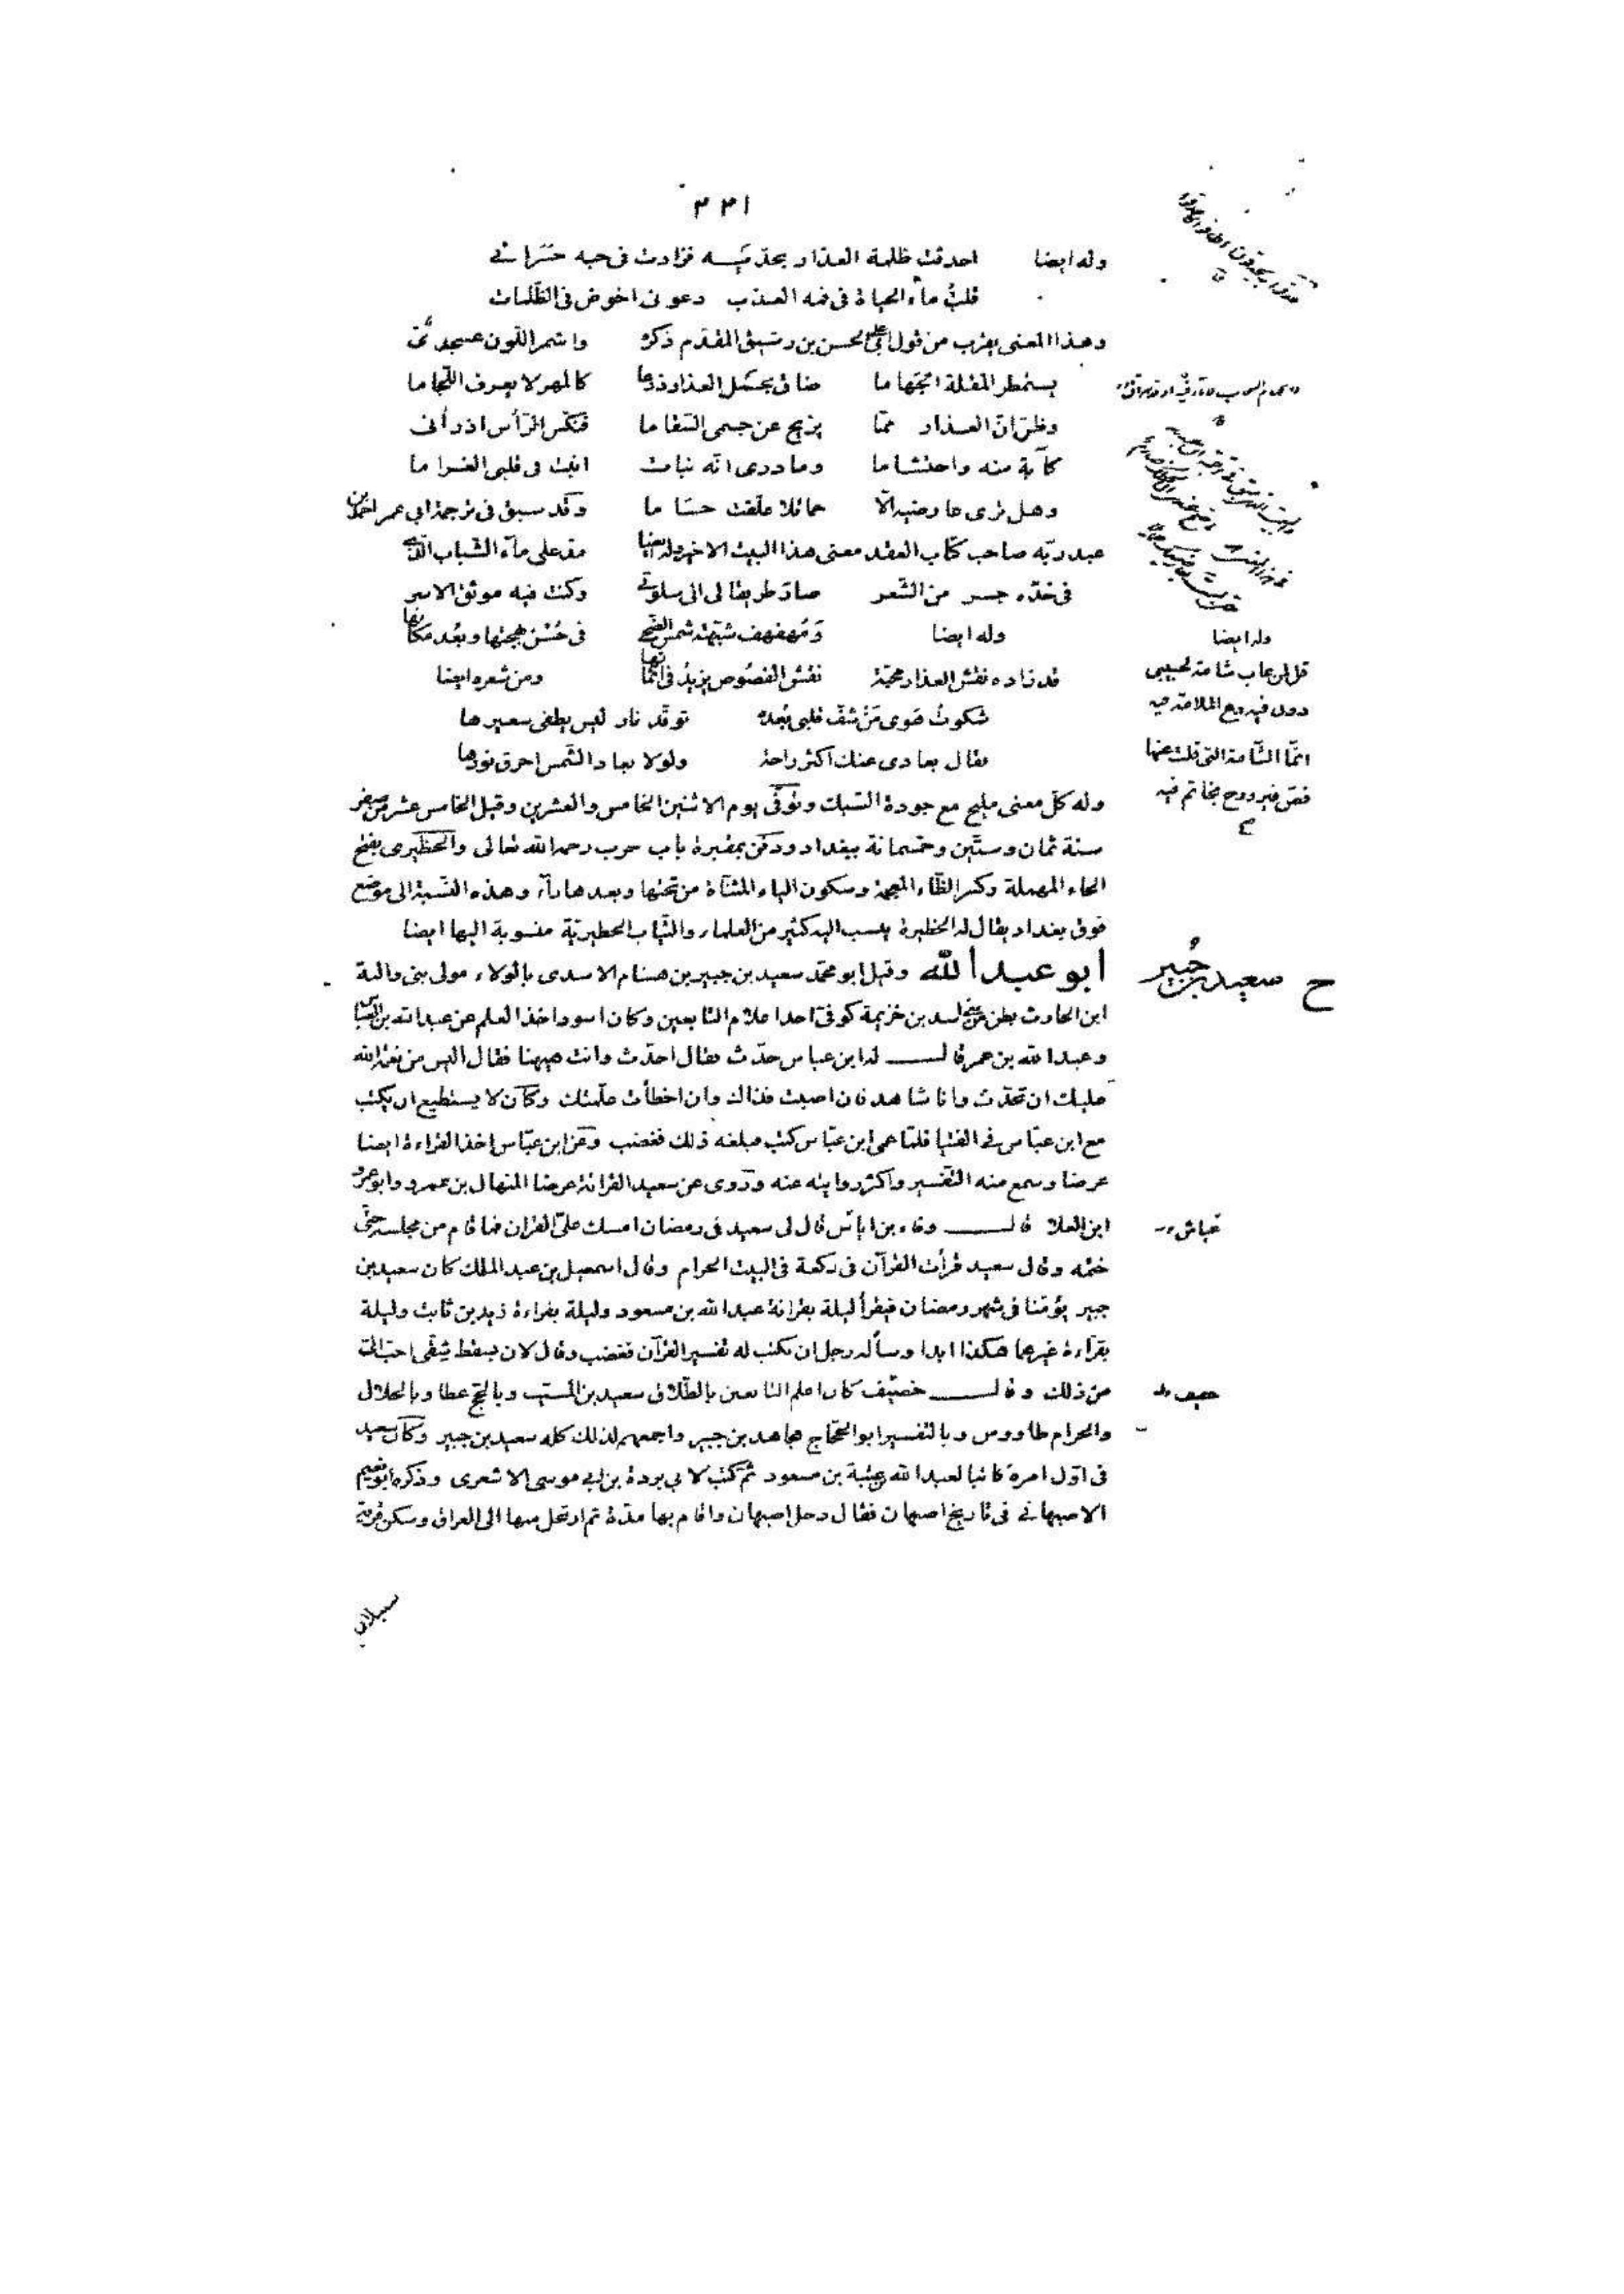 ٣٣١
وله ايضا احدقت ظلمة العذار بخدّيه فزادت فى حبه حسراتى
قلت ماء الحياة فى فمه العذب دعونى اخوض فى الظلمات
وهذا المعنى يقرب من قول ابى على الحسن بن رشيق المقدّم ذكره واسمر اللون عسجدىّ
يستمطر المقلة الجهاما ضاق بحمل العذار ذرعا كالمهر لا يعرف اللجاما
وظنّ انّ العذار ممّا يزيح عن جسمى السقاما فنكّس الرّأس اذ رأنى
كآبة منه واحتشاما وما درى انّه نبات انبت فى قلبى الغراما
وهل ترى عارضيه الّا حمائلا علّقت حساما وقد سبق فى ترجمة ابى عمر احمد بن
عبد ربّه صاحب كتاب العقد معنى هذا البيت الاخير وله ايضا مدّ على مآء الشباب الذى
فى خدّه جسر من الشّعر صار طريقا لى الى سلوتى وكنت فيه موثق الاسر
وله ايضا ومهفهف شبّهته شمس الضحى فى حسن بهجتها وبعد مكانها
قد زاده نقش العذار محبّة نقش الفصوص يزيد فى اثمانها ومن شعره ايضا
شكوت هوى من شفّ قلبى بعده توقّد نار ليس يطفى سعيرها
فقال بعادى عنك اكثر راحة ولولا بعاد الشّمس احرق نورها
وله كلّ معنى مليح مع جودة السّبك وتوفّى يوم الاثنين الخامس والعشرين وقيل الخامس عشر من صفر
سنة ثمان وستّين وخمسمائة ببغداد ودفن بمقبرة باب حرب رحمه الله تعالى والحظيرى بفتح
الحاء المهملة وكسر الظّاء المعجمة وسكون الياء المثنّاة من تحتها وبعدها رآء وهذه النّسبة الى موضع
فوق بغداد يقال له الحظيرة ينسب اليه كثير من العلماء والثّياب الحظيريّة منسوبة اليها ايضا
ابو عبد الله وقيل ابو محمّد سعيد بن جبير بن هشام الاسدى بالولاء مولى بنى والبة
ابن الحارث بطن من بنى اسد بن خزيمة كوفىّ احد اعلام التابعين وكان اسود اخذ العلم عن عبد الله بن العبّاس
وعبد الله بن عمر قال له ابن عباس حدّث فقال احدّث وانت ههنا فقال اليس من نعمة الله
عليك ان تحدّث وانا شاهد فان اصبت فذاك وان اخطأت علّمتك وكان لا يستطيع ان يكتب
مع ابن عبّاس فى الفتيا فلمّا عمى ابن عبّاس كتب فبلغه ذلك فغضب وعن ابن عبّاس اخذ القراءة ايضا
عرضا وسمع منه التّفسير واكثر روايته عنه وروى عن سعيد القراءة عرضا المنهال بن عمرو وابو عمرو
ابن العلا قال وفاء بن اياس قال لى سعيد فى رمضان امسك علىّ القران فما قام من مجلسه حتّى
ختمه وقال سعيد قرأت القرآن فى ركعة فى البيت الحرام وقال اسمعيل بن عبد الملك كان سعيد بن
جبير يؤمّنا فى شهر رمضان فيقرأ ليلة بقراءة عبد الله بن مسعود وليلة بقراءة زيد بن ثابت وليلة
بقراءة غيرهما هكذا ابدا وسأله رجل ان يكتب له تفسير القرآن فغضب وقال لان يسقط شقّى احبّ الىّ
من ذلك وقال خصيف كان اعلم التابعين بالطّلاق سعيد بن المسيّب وبالحجّ عطا وبالحلال
والحرام طاووس وبالتفسير ابو الحجّاج مجاهد بن جبير واجمعهم لذلك كله سعيد بن جبير وكان سعيد
فى اوّل امره كاتبا لعبد الله بن عتبة بن مسعود ثمّ كتب لابى بردة بن ابى موسى الاشعرى وذكره ابو نعيم
الاصبهانى فى تاريخ اصبهان فقال دخل اصبهان واقام بها مدّة ثم ارتحل منها الى العراق وسكن قرية
سنبلان
وله ايضا
قل لمن عاب شامة لحبيبى
دون فيه دع الملامة فيه
انّما الشّامة التى قلت عنها
فصّ فيروزج بخاتم فيه
ح سعيد بن جبير
عياش
خصيف